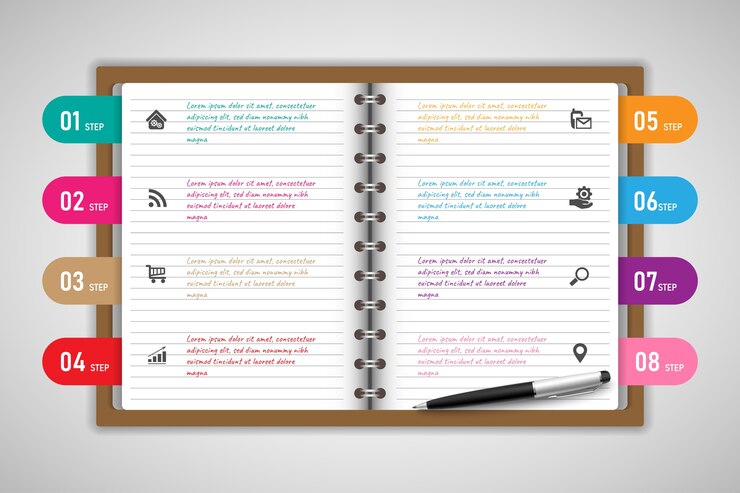 01 STEP
Lorem ipsum dolor sit amet, consectetuer
adipiscing elit, sed diam nonummy nibh
euismod tincidunt ut laoreet dolore
magna
02 STEP
Lorem ipsum dolor sit amet, consectetuer
adipiscing elit, sed diam nonummy nibh
euismod tincidunt ut laoreet dolore
magna
03 STEP
Lorem ipsum dolor sit amet, consectetuer
adipiscing elit, sed diam nonummy nibh
euismod tincidunt ut laoreet dolore
magna
04 STEP
Lorem ipsum dolor sit amet, consectetuer
adipiscing elit, sed diam nonummy nibh
euismod tincidunt ut laoreet dolore
magna
Lorem ipsum dolor sit amet, consectetuer
adipiscing elit, sed diam nonummy nibh
euismod tincidunt ut laoreet dolore
magna
05 STEP
Lorem ipsum dolor sit amet, consectetuer
adipiscing elit, sed diam nonummy nibh
euismod tincidunt ut laoreet dolore
magna
06 STEP
Lorem ipsum dolor sit amet, consectetuer
adipiscing elit, sed diam nonummy nibh
euismod tincidunt ut laoreet dolore
magna
07 STEP
Lorem ipsum dolor sit amet, consectetuer
adipiscing elit, sed diam nonummy nibh
euismod tincidunt ut laoreet dolore
magna
08 STEP